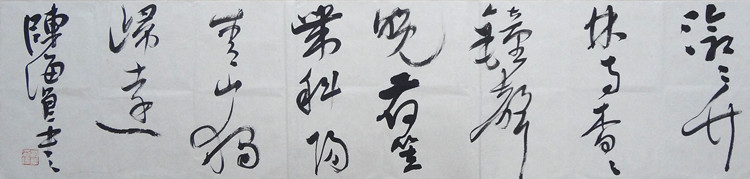 滄〻竹
林寺杳〻
鐘聲
晚荷笠
帶斜陽
青山獨
歸遠
陳海良書